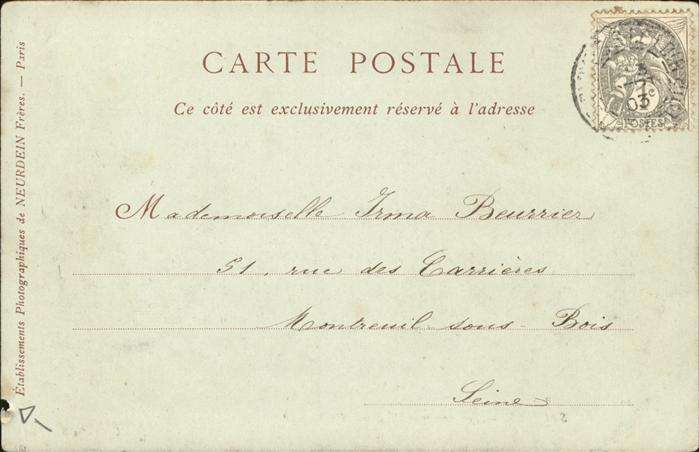 CARTE POSTALE
Ce côté est exclusivement réservé à l'adresse
Mademoiselle Irma Beurrier
51, rue des Carrières
Montreuil-sous-Bois
Seine
Établissements Photographiques de NEURDEIN Frères. — Paris
POSTES